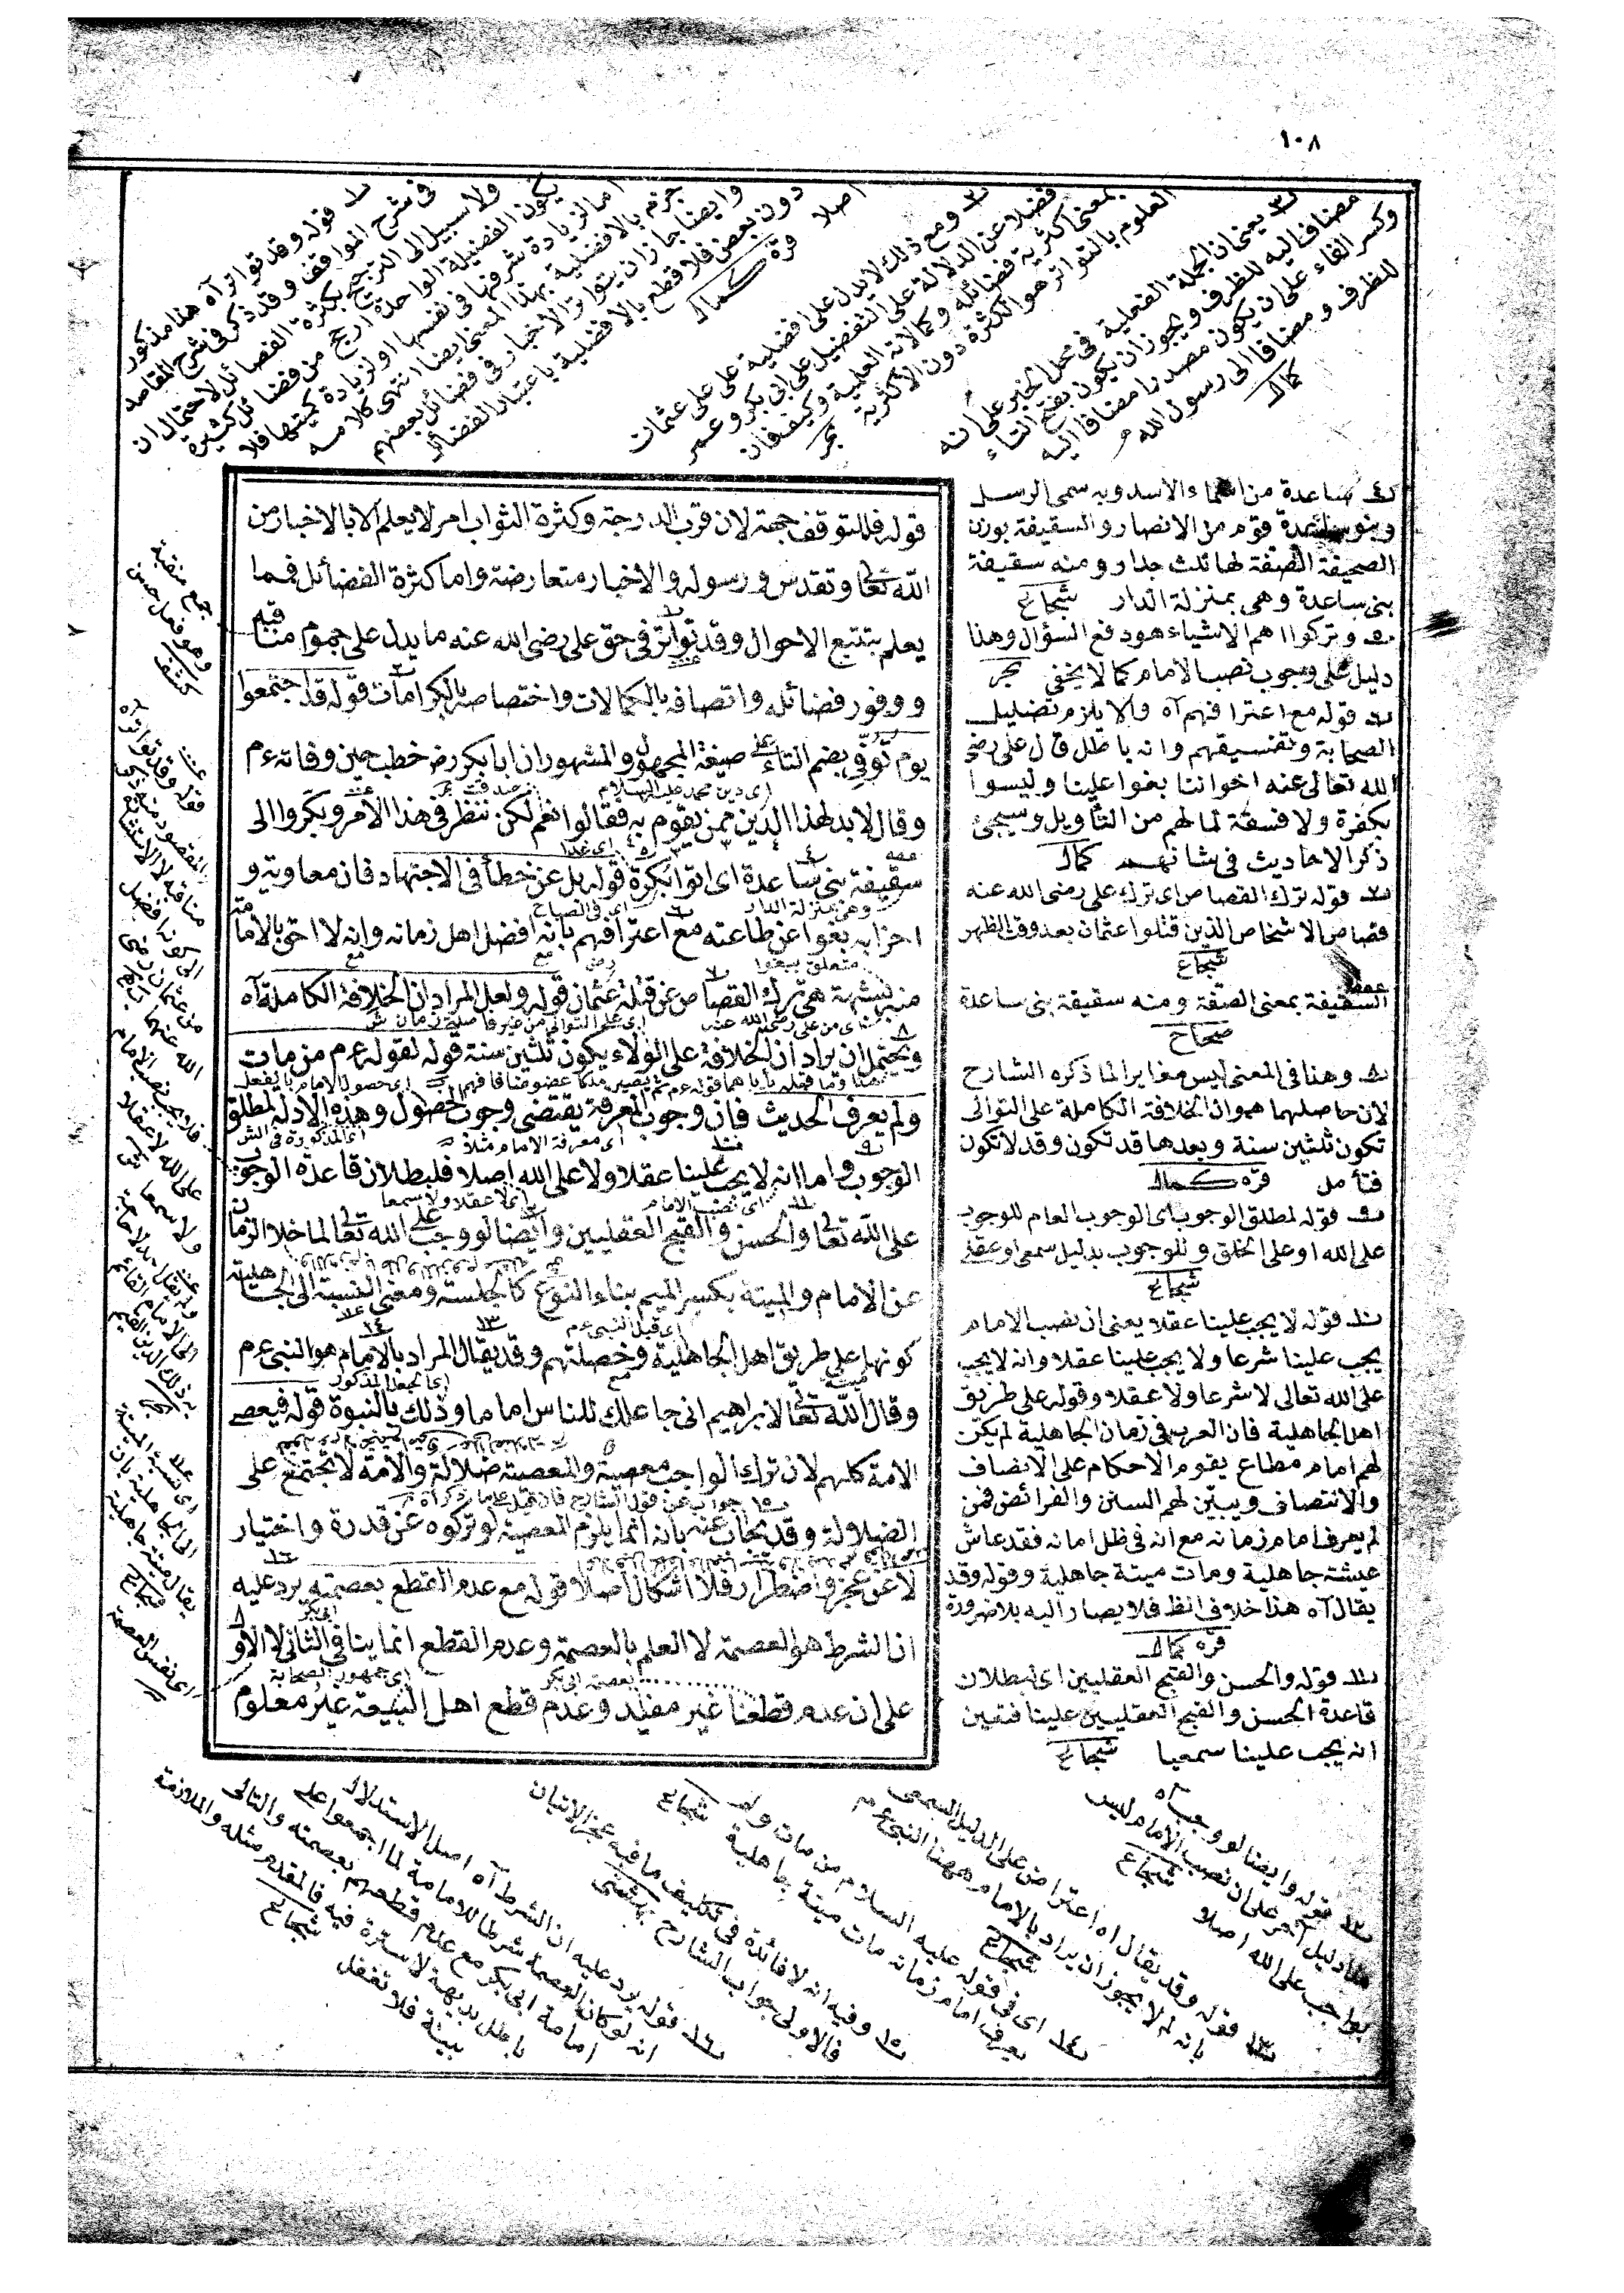 ١٠٨
قوله فللتوقف جهة لان قرب الدرجة وكثرة الثواب امر لا يعلم الا بالاخبار من
الله تعالى وتقدس ورسوله والاخبار متعارضة واما كثرة الفضائل فمما
يعلم بتتبع الاحوال وقد تواتر فى حق على رضى الله عنه ما يدل على عموم مناقبه
ووفور فضائله واتصافه بالكمالات واختصاصه بالكرامات قوله قد اجتمعوا
يوم توفى بضم التاء على صيغة المجهول والمشهور ان ابا بكر رض خطب حين وفاته ءم
وقال لا بد لهذا الدين ممن يقوم به فقالوا نعم لكن ننظر فى هذا الامر وبكروا الى
سقيفة بنى ساعدة اى اتوا بكرة قوله بل عن خطأ فى الاجتهاد فان معاوية و
احزابه بغوا عن طاعته مع اعترافهم بانه افضل اهل زمانه وانه لا احق بالامامة
منه بشبهة هى ترك القصاص عن قتلة عثمان قوله ولعل المراد ان الخلافة الكاملة آه
ويحتمل ان يراد ان الخلافة على الولاء يكون ثلثين سنة قوله لقوله ءم من مات
ولم يعرف الحديث فان وجوب المعرفة يقتضى وجوب الحصول وهذه الادلة لمطلق
الوجوب واما انه لا يجب علينا عقلا ولا على الله اصلا فلبطلان قاعدة الوجوب
على الله تعالى والحسن والقبح العقليين وايضا لو وجب على الله تعالى لما خلا الزمان
عن الامام والميتة بكسر الميم بناء النوع كالجلسة ومعنى النسبة الى الجاهلية
كونها على طريق اهل الجاهلية وخصلتهم وقد يقال المراد بالامام هو النبى ءم
وقال الله تعالى لابراهيم انى جاعلك للناس اماما وذلك بالنبوة قوله فيعصى
الامة كلهم لان ترك الواجب معصية والمعصية ضلالة والامة لا تجتمع على
الضلالة وقد يجاب عنه بانه انما يلزم المعصية لو تركوه عن قدرة واختيار
لا عن عجز واضطرار فلا اشكال اصلا قوله مع عدم القطع بعصمته يرد عليه
ان الشرط هو العصمة لا العلم بالعصمة وعدم القطع انما ينافى الثانى لا الاول
على ان عدم قطعنا غير مفيد وعدم قطع اهل البيعة غير معلوم
٤ ساعدة من اسماء الاسد وبه سمى الرجل
وبنو ساعدة قوم من الانصار والسقيفة بوزن
الصحيفة الصفة لها ثلث جدار ومنه سقيفة
بنى ساعدة وهى بمنزلة الدار شجاع
٥ وتركوا اهم الاشياء هو دفع السؤال وهذا
دليل على وجوب نصب الامام كما لا يخفى بحر
٦ قوله مع اعترافهم آه والا يلزم تضليل
الصحابة وتفسيقهم وانه باطل قال على رضى
الله تعالى عنه اخواننا بغوا علينا وليسوا
بكفرة ولا فسقة لما لهم من التأويل وسيجئ
ذكر الاحاديث فى شانهم كمال
٧ قوله ترك القصاص اى ترك على رضى الله عنه
قصاص الاشخاص الذين قتلوا عثمان بعد وقت الظهر
شجاع
السقيفة بمعنى الصفة ومنه سقيفة بنى ساعدة
صحاح
٨ وهنا فى المعنى ليس مغايرا لما ذكره الشارح
لان حاصلهما هو ان الخلافة الكاملة على التوالى
تكون ثلثين سنة وبعدها قد تكون وقد لا تكون
فتأمل قره كمال
٩ قوله لمطلق الوجوب اى الوجوب العام للوجوب
على الله او على الخلق وللوجوب بدليل سمعى او عقلى
شجاع
١٠ قوله لا يجب علينا عقلا يعنى ان نصب الامام
يجب علينا شرعا ولا يجب علينا عقلا وانه لا يجب
على الله تعالى لا شرعا ولا عقلا وقوله على طريق
اهل الجاهلية فان العرب فى زمان الجاهلية لم يكن
لهم امام مطاع يقوم الاحكام على الانصاف
والانتصاف ويبين لهم السنن والفرائض فمن
لم يعرف امام زمانه مع انه فى ظل امانه فقد عاش
عيشة جاهلية ومات ميتة جاهلية وقوله وقد
يقال آه هذا خلاف الظ فلا يصار اليه بلا ضرورة
قره كمال
١١ قوله والحسن والقبح العقليين اى لبطلان
قاعدة الحسن والقبح العقليين علينا فتعين
انه يجب علينا سمعيا شجاع
١ قوله وقد تواتر آه هنا مذكور
فى شرح المواقف وقد ذكر فى شرح المقاصد
ولا سبيل الى الترجيح بكثرة الفضائل لاحتمال ان
يكون الفضيلة الواحدة ارجح من فضائل كثيرة
اما لزيادة شرفها فى نفسها او لزيادة كميتها فلا
جزم بالافضلية بهذا المعنى ايضا انتهى كلامه
وايضا جاز ان يتواتر الاخبار فى فضائل بعضهم
دون بعض فلا قطع بالافضلية باعتبار الفضائل
اصلا قره كمال
٢ ومع ذلك لا يدل على افضلية على على عثمان
فضلا عن الدلالة على التفضيل على ابى بكر وعمر
بمعنى اكثرية فضائله وكمالاته العلية وكيف فان
العلوم بالتواتر هو الكثرة دون الاكثرية بحر
٣ يعنى ان الجملة الفعلية فى محل الجر على انه
مضاف اليه للظرف ويجوز ان يكون بفتح التاء
وكسر الفاء على ان يكون مصدرا مضافا اليه
للظرف ومضافا الى رسول الله
كمال
جمع منقبة
وهو فعل حسن
كشف
١٢ قوله وايضا لو وجب آه
هذا دليل آخر على ان نصب الامام ليس
بواجب على الله اصلا شجاع
١٣ قوله وقد يقال آه اعتراض على الدليل السمعى
بانه لم لا يجوز ان يراد بالامام ههنا النبى ءم
شجاع
١٤ اى فى قوله عليه السلام من مات ولم
يعرف امام زمانه مات ميتة جاهلية شجاع
١٥ وفيه انه لا فائدة فى تكليف ما فيه عجز الاتيان
فالاولى جواب الشارح بهشتى
١٦ قوله يرد عليه ان الشرط آه اصل الاستدلال
انه لو كان العصمة شرطا للامامة لما اجمعوا على
امامة ابى بكر مع عدم قطعهم بعصمته والتالى
باطل بديهة لا سترة فيه فالمقدم مثله والملازمة
بينة فلا تغفل شجاع